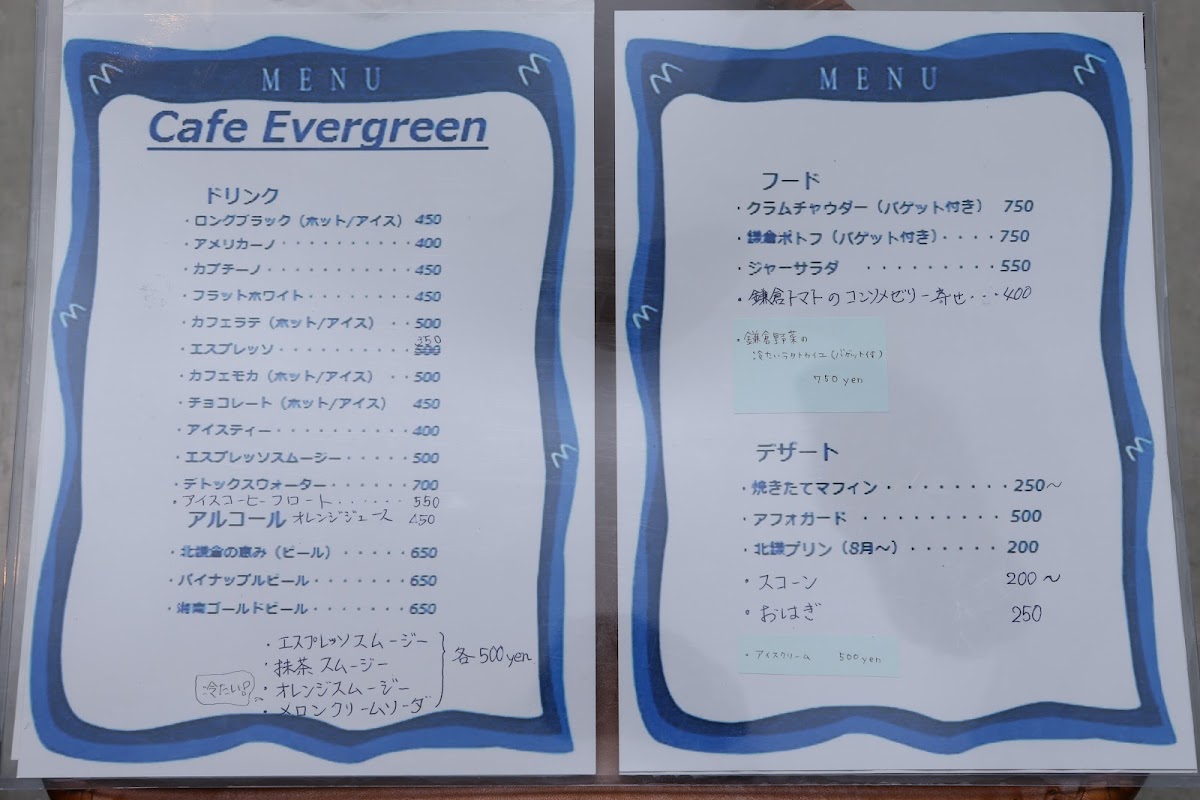 MENU
Cafe Evergreen
ドリンク
・ロングブラック（ホット/アイス） 450
・アメリカーノ・・・・・・・・・・400
・カプチーノ・・・・・・・・・・・450
・フラットホワイト・・・・・・・・450
・カフェラテ（ホット/アイス） ・・500
350
・エスプレッソ・・・・・・・・・・500
・カフェモカ（ホット/アイス） ・・500
・チョコレート（ホット/アイス） 450
・アイスティー・・・・・・・・・・400
・エスプレッソスムージー・・・・・500
・デトックスウォーター・・・・・・700
・アイスコーヒーフロート・・・・・・550
アルコール オレンジジュース 450
・北鎌倉の恵み（ビール）・・・・・650
・パイナップルビール・・・・・・・650
・湘南ゴールドビール・・・・・・・650
・エスプレッソスムージー
・抹茶スムージー
各500yen
冷たい!
・オレンジスムージー
・メロンクリームソーダ
MENU
フード
・クラムチャウダー（バゲット付き） 750
・鎌倉ポトフ（バゲット付き）・・・・750
・ジャーサラダ ・・・・・・・・・550
・鎌倉トマトのコンソメゼリー寄せ・・・400
・鎌倉野菜の
冷たいラタトゥイユ（バゲット付）
750yen
デザート
・焼きたてマフィン・・・・・・・・250～
・アフォガード ・・・・・・・・・500
・北鎌プリン（8月～）・・・・・・200
・スコーン 200～
・おはぎ 250
・アイスクリーム 500yen